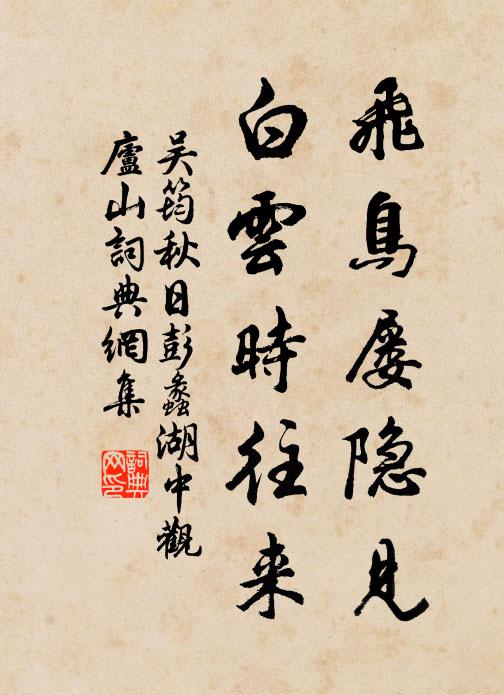 飛鳥屡隐見
白雲時往来
吴筠秋日彭蠡湖中觀
廬山詞典網集
詞典网印